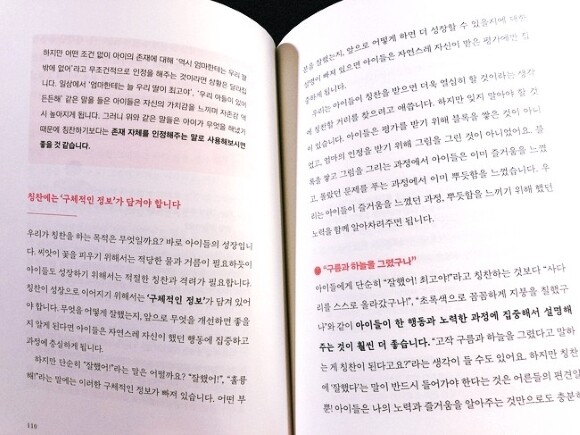 하지만 어떤 조건 없이 아이의 존재에 대해 '역시 엄마한테는 우리 딸
밖에 없어'라고 무조건적으로 인정을 해주는 것이라면 상황은 달라집
니다. 일상에서 '엄마한테는 늘 우리 딸이 최고야', '우리 아들이 있어
든든해' 같은 말을 들은 아이들은 자신의 가치감을 느끼며 자존감 역
시 높아지게 됩니다. 그러니 위와 같은 말들은 아이가 무엇을 해냈기
때문에 칭찬하기보다는 존재 자체를 인정해주는 말로 사용해보시면
좋을 것 같습니다.
칭찬에는 '구체적인 정보'가 담겨야 합니다
우리가 칭찬을 하는 목적은 무엇일까요? 바로 아이들의 성장입니
다. 씨앗이 꽃을 피우기 위해서는 적당한 물과 거름이 필요하듯이
아이들도 성장하기 위해서는 적절한 칭찬과 격려가 필요합니다.
칭찬이 성장으로 이어지기 위해서는 '구체적인 정보'가 담겨 있어
야 합니다. 무엇을 어떻게 잘했는지, 앞으로 무엇을 개선하면 좋을
지 알게 된다면 아이들은 자연스레 자신이 했던 행동에 집중하고
과정에 충실하게 됩니다.
하지만 단순히 "잘했어!"라는 말은 어떨까요? "잘했어!", "훌륭
해!"라는 말에는 이러한 구체적인 정보가 빠져 있습니다. 어떤 부
110
분을 잘했는지, 앞으로 어떻게 하면 더 성장할 수 있을지에 대한
설명이 빠져 있으면 아이들은 자연스레 자신이 받은 평가에만 집
중하게 됩니다.
우리는 아이들이 칭찬을 받으면 더욱 열심히 할 것이라는 생각
에 칭찬할 거리를 찾으려고 애씁니다. 하지만 잊지 말아야 할 것
이 있습니다. 아이들은 평가를 받기 위해 블록을 쌓은 것이 아니
었고, 엄마의 인정을 받기 위해 그림을 그린 것이 아니었어요. 블
록을 쌓고 그림을 그리는 과정에서 아이들은 이미 즐거움을 느꼈
고, 몰랐던 문제를 푸는 과정에서 이미 뿌듯함을 느꼈습니다. 우
리는 아이들이 즐거움을 느꼈던 과정, 뿌듯함을 느끼기 위해 했던
노력을 함께 알아차려주면 됩니다.
● "구름과 하늘을 그렸구나"
아이들에게 단순히 "잘했어! 최고야!"라고 칭찬하는 것보다 "사다
리를 스스로 올라갔구나!", "초록색으로 꼼꼼하게 지붕을 칠했구
나!"와 같이 아이들이 한 행동과 노력한 과정에 집중해서 설명해
주는 것이 훨씬 더 좋습니다. "고작 구름과 하늘을 그렸다고 말하
는 게 칭찬이 된다고요?"라는 생각이 들 수도 있어요. 하지만 칭찬
에 '잘했다'는 말이 반드시 들어가야 한다는 것은 어른들의 편견일
뿐! 아이들은 나의 노력과 즐거움을 알아주는 것만으로도 충분히